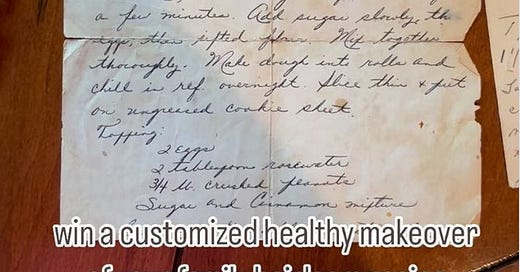 a few minutes. Add sugar slowly, the
eggs, then sifted flour. Mix together
thoroughly. Make dough into rolls and
chill in ref. overnight. Slice thin & put
on ungreased cookie sheet.
Topping:
2 eggs
2 tablespoon rosewater
3/4 lb. crushed peanuts
Sugar and Cinnamon mixture
win a customized healthy makeover